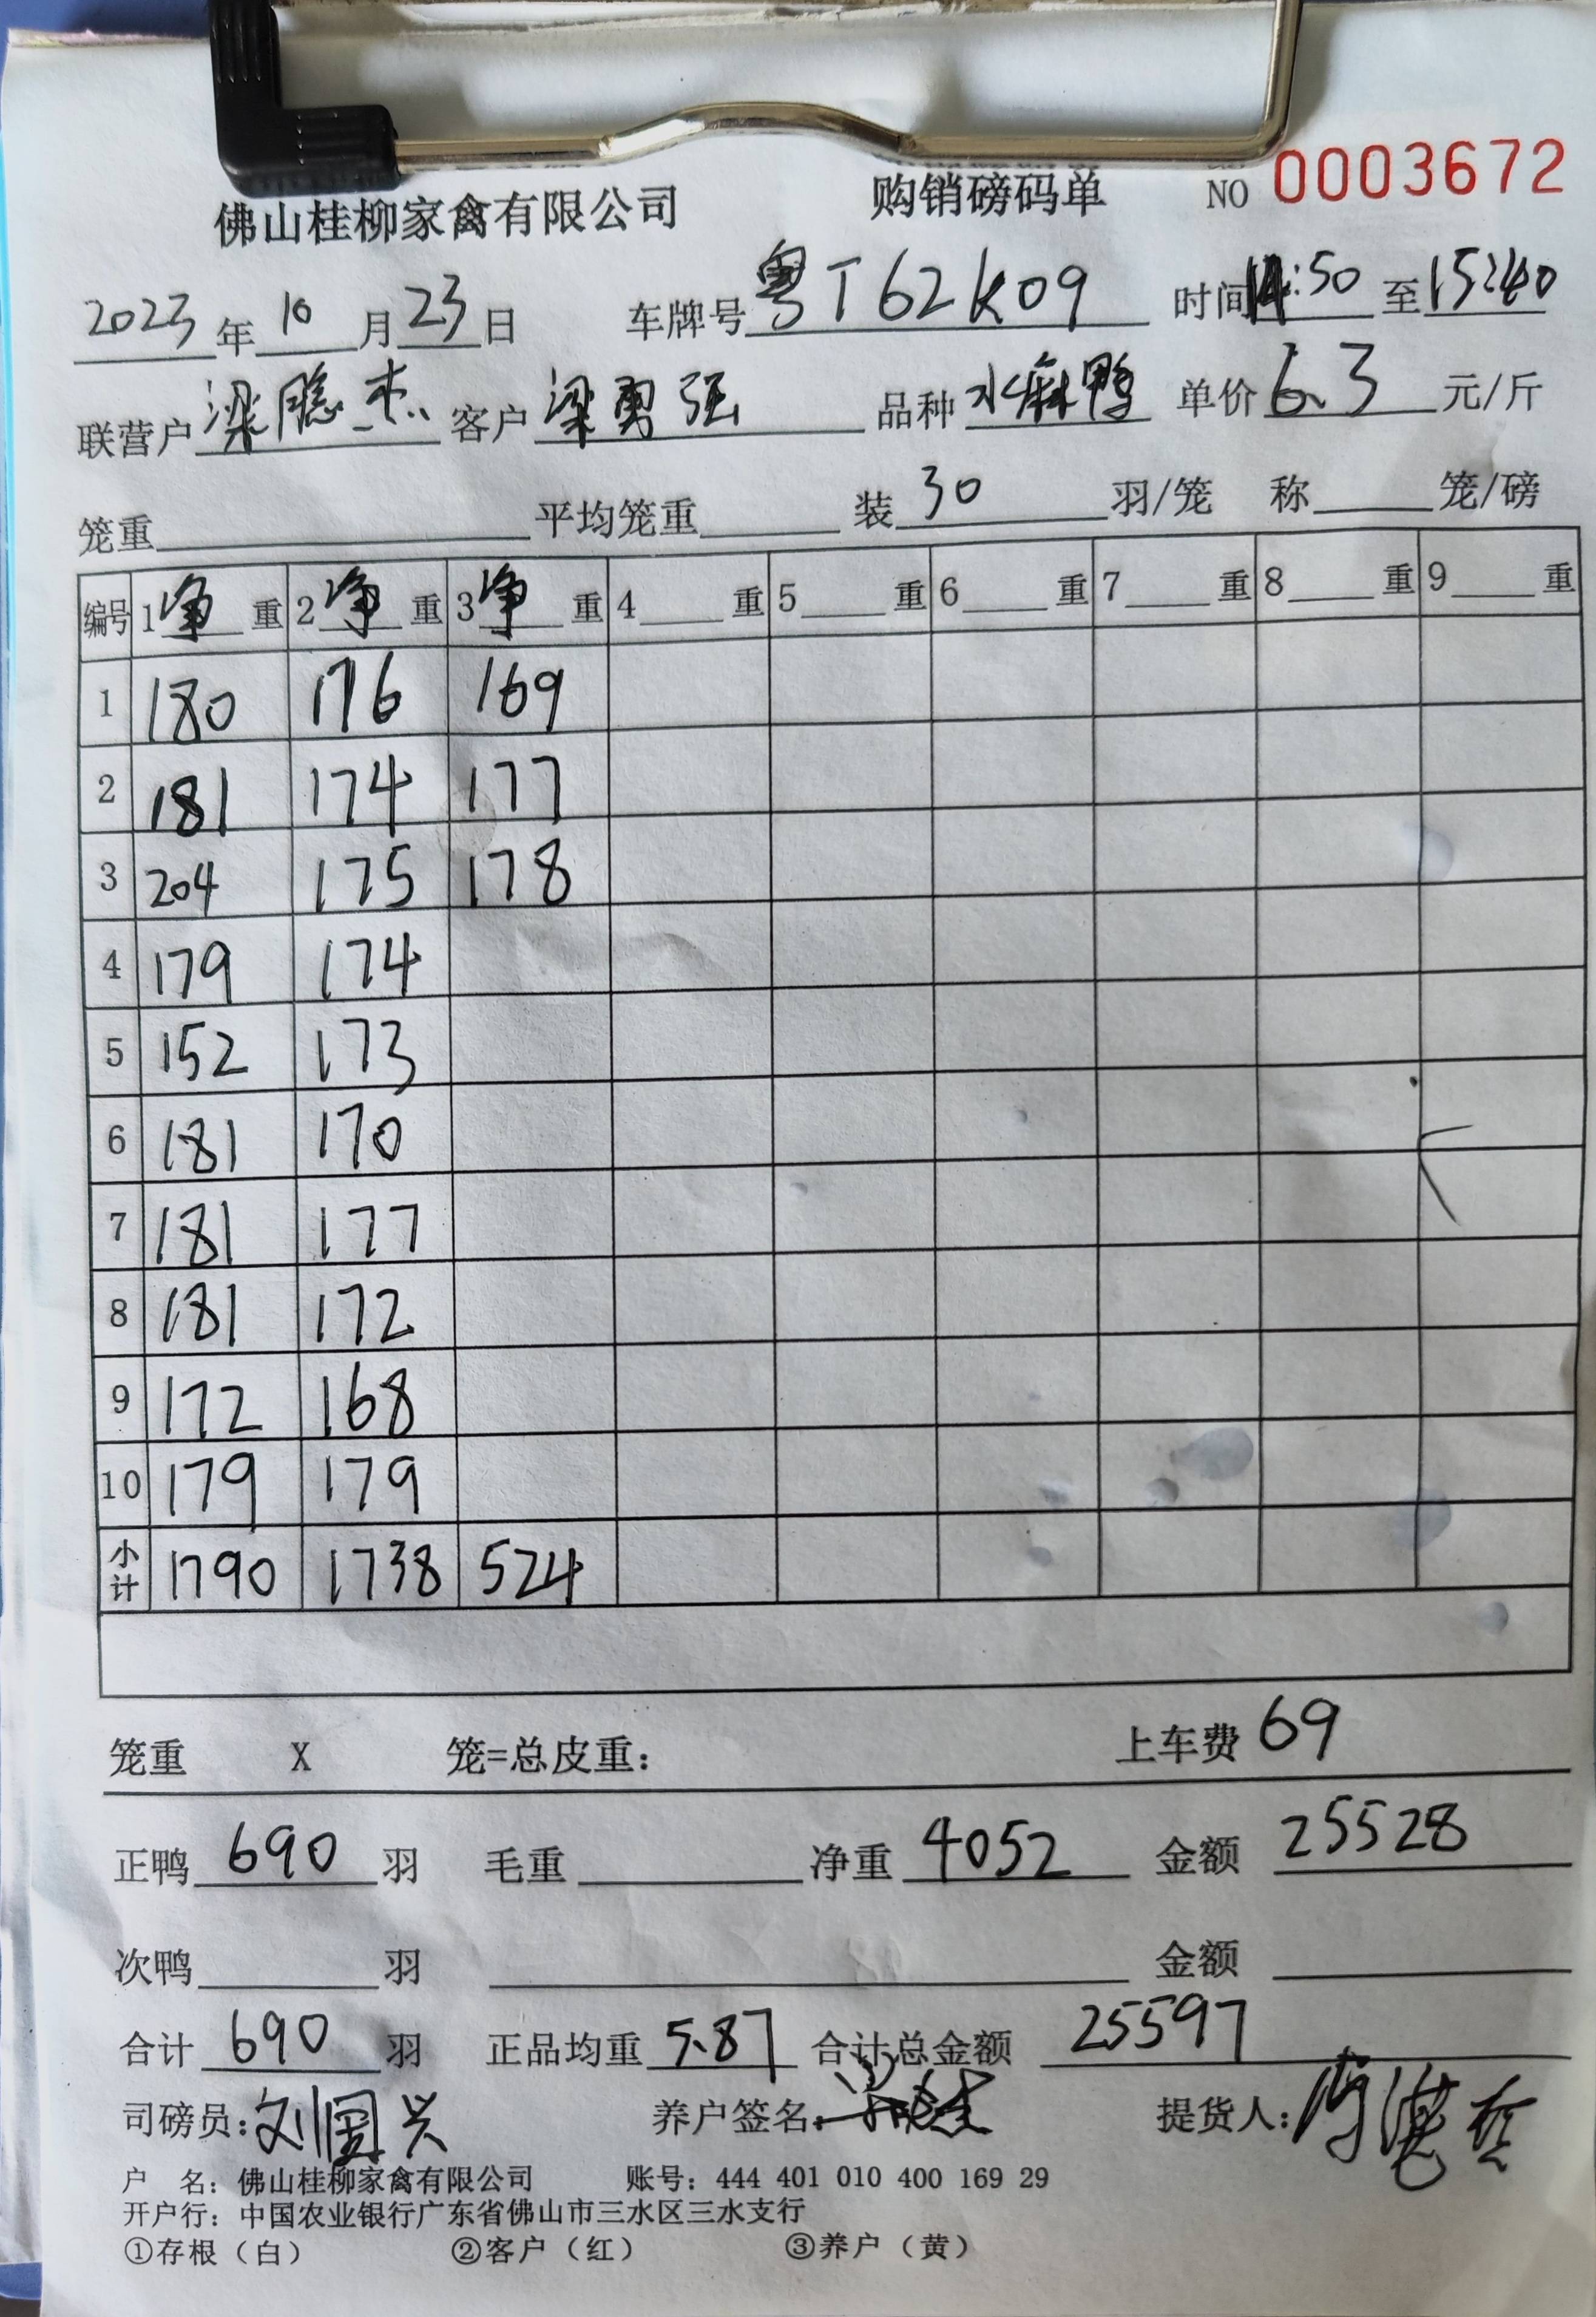 佛山桂柳家禽有限公司 购销磅码单 NO 0003672
2023年10月23日 车牌号粤T62K09 时间14:50至15:40
联营户梁聪杰 客户梁勇强 品种水麻鸭 单价6.3元/斤
笼重 平均笼重 装30羽/笼 称 笼/磅
编号 1净重 2净重 3净重 4 重 5 重 6 重 7 重 8 重 9 重
1 180 176 169
2 181 174 177
3 204 175 178
4 179 174
5 152 173
6 181 170
7 181 177
8 181 172
9 172 168
10 179 179
小计 1790 1738 524
笼重 X 笼=总皮重: 上车费69
正鸭690羽 毛重 净重4052 金额25528
次鸭 羽 金额
合计690羽 正品均重5.87 合计总金额25597
司磅员:刘国兴 养户签名: 提货人:
户 名: 佛山桂柳家禽有限公司 账号: 444 401 010 400 169 29
开户行: 中国农业银行广东省佛山市三水区三水支行
①存根（白） ②客户（红） ③养户（黄）